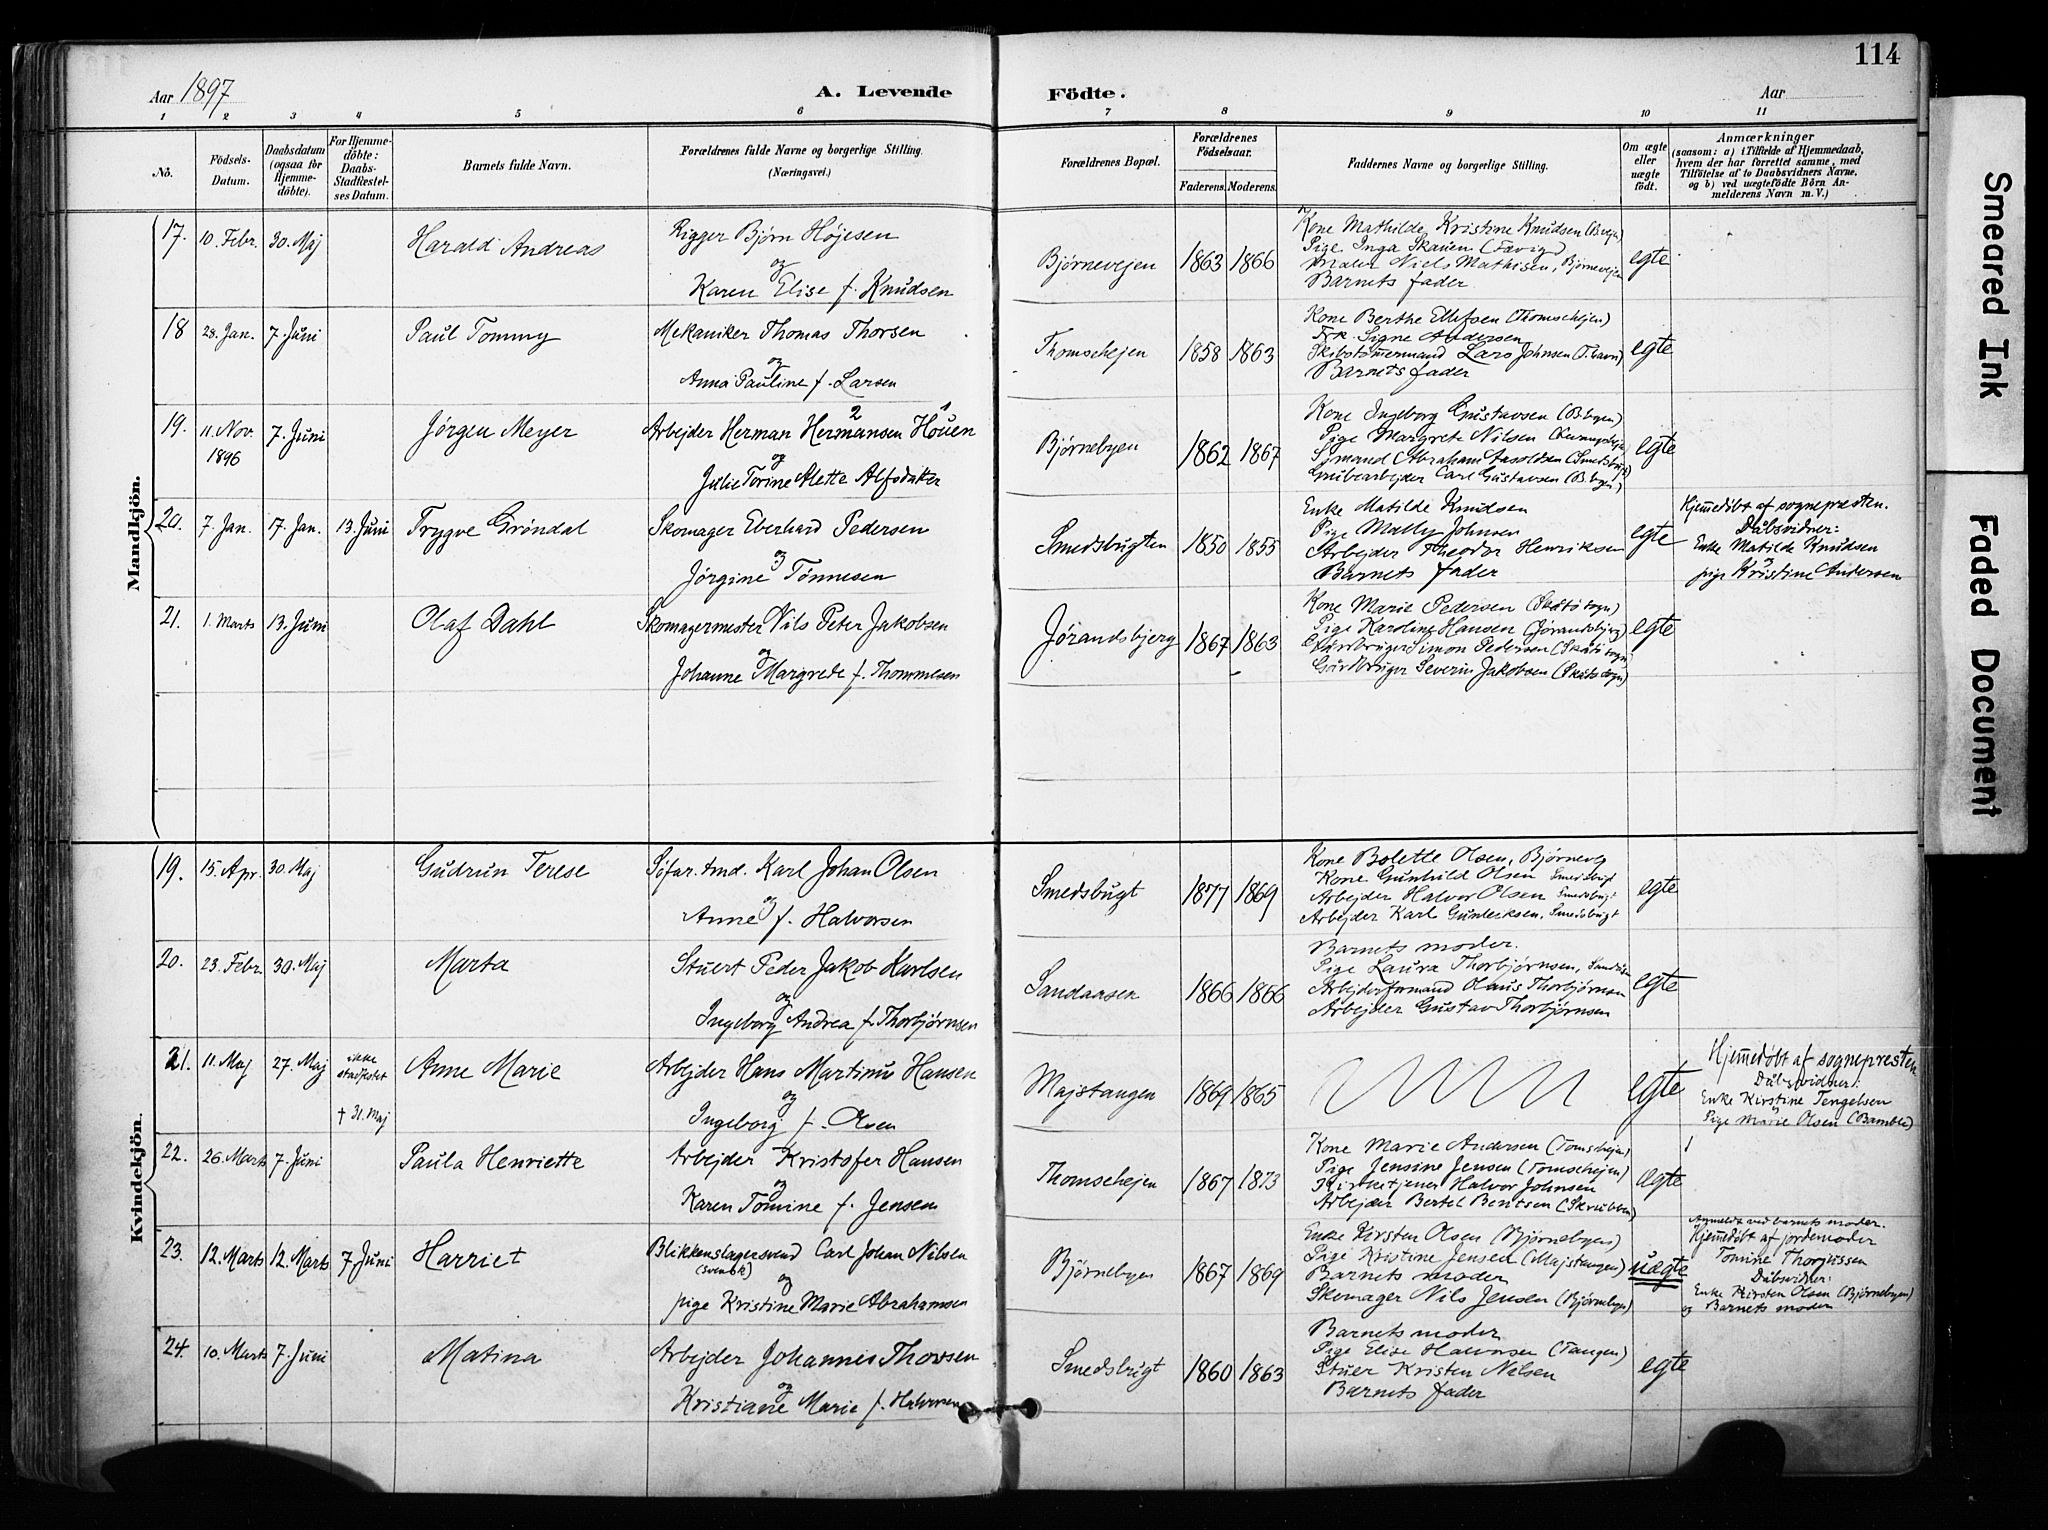 114
Aar 1897
A. Levende Födte.
Aar
1 2 3 4 5 6 7 8 9 10 11
No.
Födsels-Datum.
Daabsdatum (ogsaa for Hjemmedöbte).
For Hjemmedöbte: Daabs-Stadfæstelses Datum.
Barnets fulde Navn.
Forældrenes fulde Navne og borgerlige Stilling.
(Næringsvei.)
Forældrenes Bopæl.
Forældrenes Födselsaar.
Faderens. Moderens.
Faddernes Navne og borgerlige Stilling.
Om ægte eller uægte födt.
Anmærkninger
(saasom: a) i Tilfælde af Hjemmedaab,
hvem der har forrettet samme, med
Tilföielse af to Daabsvidners Navne,
og b) ved uægtefödte Börn An-
melderens Navn m. V.)
Mandkjön.
17. 10. Febr. 30. Maj Harald Andreas
Rigger Bjørn Højesen
og
Karen Elise f. Knudsen
Bjørnevejen 1863 1866
Kone Mathilde Kristine Knudsen (B.vejn)
Pige Inga Skauen (Fævig)
Maler Niels Mathisen, Bjørnevejen
Barnets fader
egte
18 28. Jan. 7. Juni Paul Tommy
Mekaniker Thomas Thorsen
og
Anna Pauline f. Larsen
Thomsehejen 1858 1863
Kone Berthe Ellefsen (Thomsehejen)
Frk. Signe Andersen
Skibstømermand Lars Johnsen (T.havn)
Barnets fader
egte
19. 11. Nov. 1896 7. Juni Jørgen Meyer
Arbejder Herman Hermansen 2 Houen 1
og
Julie Torine Alette Alfsdatter
Bjørnebyen 1862 1867
Kone Ingeborg Gustavsen (B.byen)
Pige Margrete Nilsen
Sømand (Abraham Aasoldsen (Smedsbugt)
Grubearbejder Carl Gustavsen (B.byen)
egte
20. 7. Jan. 17. Jan. 13. Juni Trygve Grøndal
Skomager Eberhard Pedersen
og
Jørgine Tønnesen
Smedsbugten 1850 1855
Enke Matilde Knudsen
Pige Mally Johnsen
Arbejder Theodor Henriksen
Barnets fader
egte
Hjemedøbt af sognepræsten.
Dåbsvidner:
Enke Matilde Knudsen
pige Kristine Andersen
21. 1. Marts 13. Juni Olaf Dahl
Skomagermester Nils Peter Jakobsen
og
Johanne Margrede f. Thommesen
Jørandsbjerg 1867 1863
Kone Marie Pedersen (Skåtø sogn)
Pige Karoline Hansen (Jørandsbjerg)
Gårdbruger Simon Pedersen (Skåtø sogn)
Gårdbruger Severin Jakobsen (Skåtø sogn)
egte
Kvindekjön.
19. 15. Apr. 30. Maj Gudrun Terese
Søfar. tmd. Karl Johan Olsen
og
Anne f. Halvorsen
Smedsbugt 1877 1869
Kone Bolette Olsen, Bjørnevej
Kone Gunhild Olsen Smedsbugt
Arbejder Halvor Olsen Smedsbugt
Arbejder Karl Gunleiksen, Smedsbugt
egte
20. 23. Febr. 30. Maj Marta
Stuert Peder Jakob Karlsen
og
Ingeborg Andrea f. Thorbjørnsen
Sandaasen 1866 1866
Barnets moder.
Pige Laura Thorbjørnsen, Sandåsen
Arbejderformand Olaus Thorbjørnsen
Arbejder Gustav Thorbjørnsen
egte
21. 11. Maj 27. Maj ikke stadfestet
† 31. Maj
Anne Marie
Arbejder Hans Martinus Hansen
og
Ingeborg f. Olsen
Majstangen 1869 1865
egte
Hjemmedøbt af sognepresten
Dåbsvidner:
Enke Kirstine Tengelsen
og
Pige Marie Olsen (Bamble)
22. 26. Marts 7. Juni Paula Henriette
Arbejder Kristofer Hansen
og
Karen Tomine f. Jensen
Thomsehejen 1867 1873
Kone Marie Andersen (Tomsehejen)
Pige Jensine Jensen (Tomsehejen)
Kirketjener Halvor Johnsen
Arbejder Bertel Bentsen (Skrubben)
ægte
23. 12. Marts 12. Marts 7. Juni Harriet
Blikkenslagersvend Carl Johan Nilsen
(svensk)
og
pige Kristine Marie Abrahamsen
Bjørnebyen 1867 1869
Enke Kirsten Olsen (Bjørnebyen)
Pige Kristine Jensen (Majstangen)
Barnets moder
Skomager Nils Jensen (Bjørnebyn)
uægte
Anmeldt ved barnets moder.
Hjemedøbt af jordemoder
Tomine Thorjussen
Dåbsvidner:
Enke Kirsten Olsen (Bjørnebyen)
og Barnets moder
24. 10. Marts 7. Juni Matina
Arbejder Johannes Thorsen
og
Kristiane Marie f. Halvorsen
Smedsbugt 1860 1863
Barnets moder
Pige Elise Halvorsen (Tangen)
Stuer Kristen Nilsen
Barnets fader
egte
Smeared Ink
Faded Document